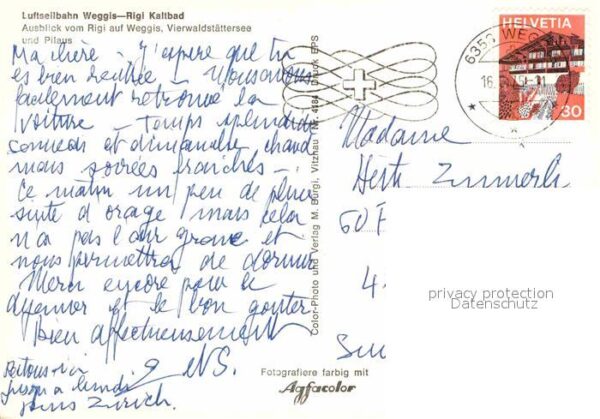 Luftseilbahn Weggis—Rigi Kaltbad
Ausblick vom Rigi auf Weggis, Vierwaldstättersee
und Pilatus
Ma chère – J'espère que tu
es bien rentrée – Nous avons
facilement retrouvé la
voiture – Temps splendide
samedi et dimanche, chaud
mais soirées fraîches –
Ce matin un peu de pluie
suite d'orage mais cela
n'a pas l'air grave et
nous permettra de dormir
Merci encore pour le
déjeuner et le bon goûter
bien affectueusement
Restons ici
jusqu'à lundi
puis Zürich.
Color-Photo und Verlag M. Bürgi, Vitznau Nr. 4184 Druck EPS
HELVETIA
30
6353 WEGGIS
16.
Madame
Zimmerli
60
Fotografiere farbig mit
Agfacolor
privacy protection
Datenschutz